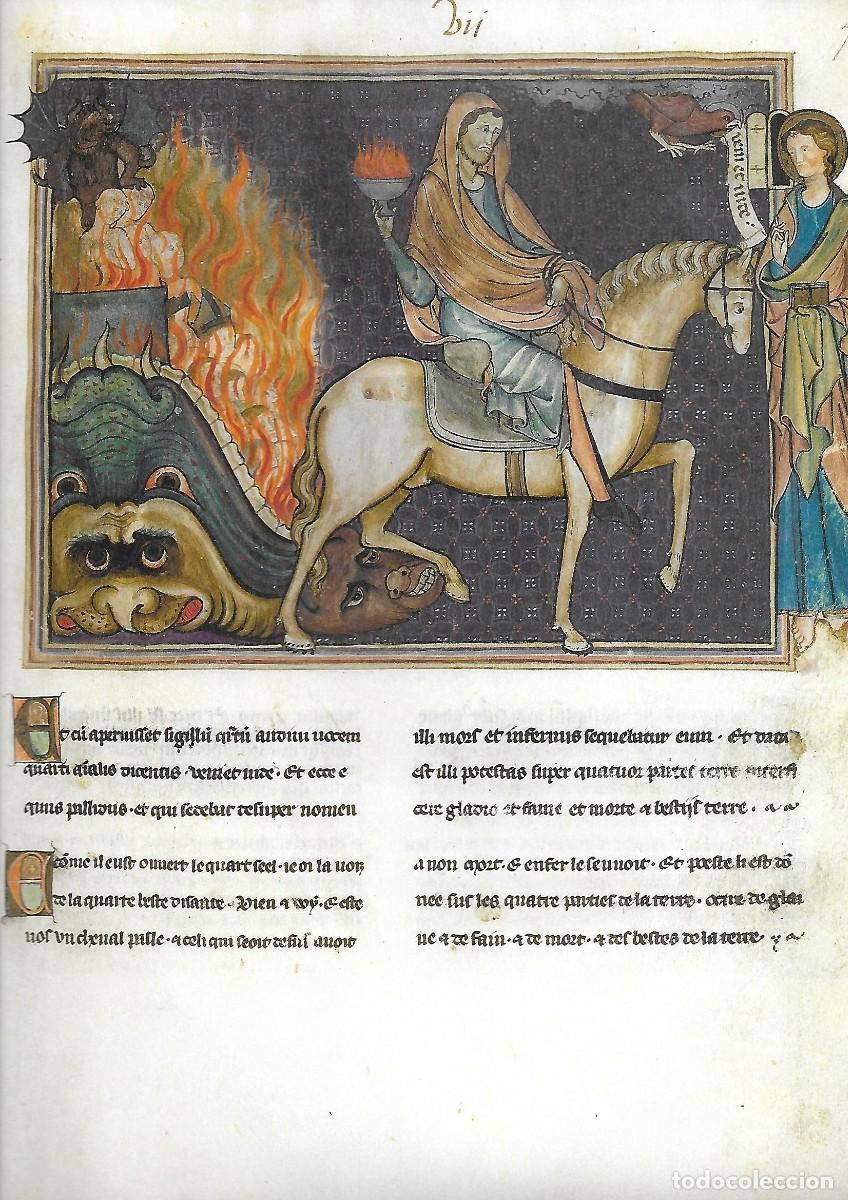 vii
7
veni et vide
Et cū aperuisset sigillū qrtū audivi vocem
quarti aīalis dicentis · veni et vide · Et ecce e
quus pallidus · et qui sedebat desuper nomen
illi mors et infernus sequebatur eum · Et data
est illi potestas super quatuor partes terre interfi
cere gladio et fame et morte & bestijs terre ·
Cōme il eust ouvert le quart seel · ie oi la voiz
de la quarte beste disante · Vien & voy · & este
vos vn cheual palle · & celi qui seoit desus auoit
a non mort · & enfer le seuuoit · Et poeste li est dō
nee sus les quatre parties de la terre · ocirre de glai
ue & de fain · & de mort · & des bestes de la terre ·
todocoleccion